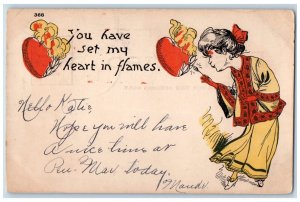 368
You have
set my
heart in flames.
Hello Katie,
Hope you will have
a nice time at
Pen-Mar today.
Maude